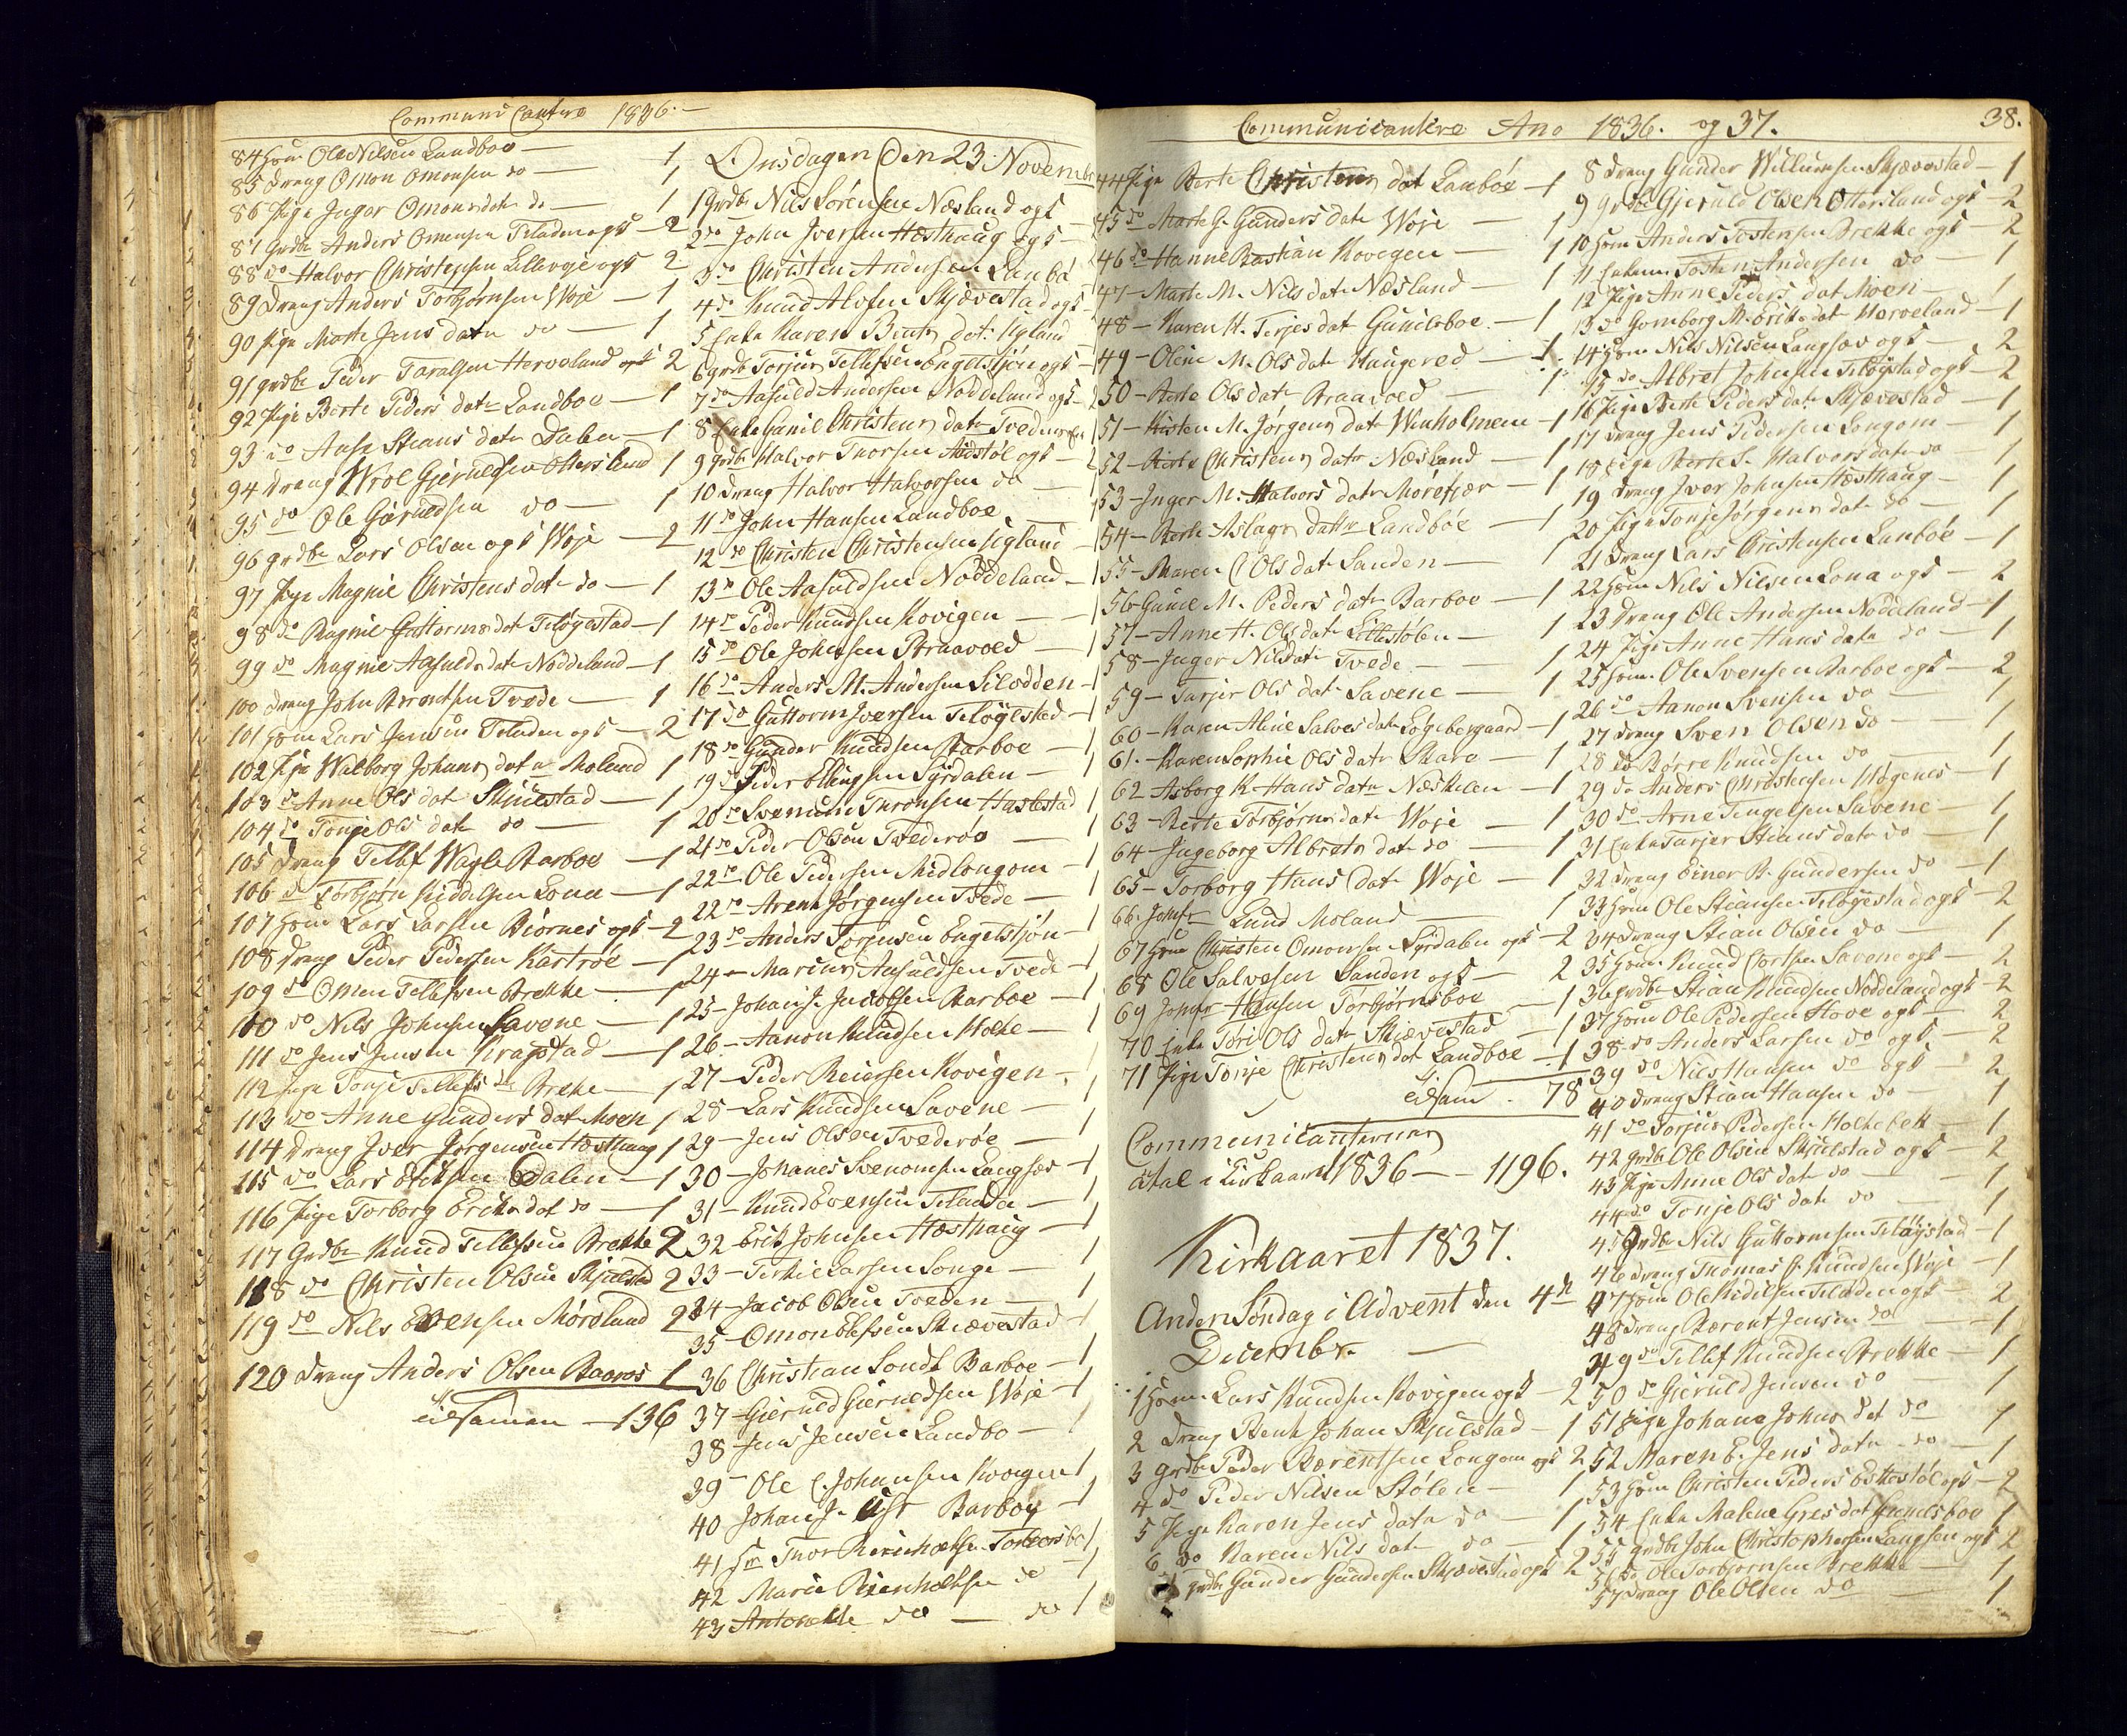 Communicantere 1836.
84 Huusm Ole Nilsen Landboe — 1
85 Dreng Omon Omonsen do — 1
86 Pige Inger Omons datr do — 1
87 Grdbr Anders Omonsen ogs — 2
88 do Halvor Christensen ogs 2
89 Dreng Anders Torbjørnsen Woje — 1
90 Pige Marte Jens datr do — 1
91 grdbr Peder Herveland ogs 2
92 Pige Berte Peders datr Landboe — 1
93 do Aase Steans datr Dalen — 1
94 Dreng Wroe Gjeruldsen Ottersland 1
95 do Ole Gjeruldsen do — 1
96 grdbr Lars Olsen ogs Woje — 2
97 Pige Magnie Christens datr do — 1
98 do Ragnil Guttorms dat Teløgestad — 1
99 do Magnie Aasulds datr Noddeland — 1
100 Dreng John Berentsen Tvede — 1
101 Huusm Lars Jensen ogs — 2
102 Pige Walborg Johans datr Moland 1
103 do Anne Ols dat Skjulestad — 1
104 do Tonje Ols datr do — 1
105 Dreng Tellef Wagle Barboe — 1
106 do Torbjørn Kiddelsen Lona — 1
107 Huusm Lars Larsen Biørnes ogs — 2
108 Dreng Peder Pedersen Kartrøe — 1
109 do Omon Tellefsen Brekke — 1
110 do Nils Johnsen Savene — 1
111 do Jens Jensen Kragstad — 1
112 Pige Tonje Tellefs dr Brekke — 1
113 do Anne Gunders dat Moen 1
114 Dreng Iver Jørgensen Hæsthaug 1
115 do Lars Eriksen Dalen — 1
116 Pige Torborg Eriks dat do — 1
117 Grdbr Knud Tellefsen Brekke 2
118 do Christen Olsen Skjulestad 2
119 do Nils Evensen Mørland 2
120 Dreng Anders Olsen Baaros 1
tilsamen — 136
Onsdagen den 23 Novembr
1 Grdbr Nils Sørensen Næsland ogs
2 do John Iversen Hæsthaug ogs —
3 do Christen Andersen Lanbø
4 do Knud Alofsen Skjævestad ogs
5 Enke Karen Bents dat Igland
6 grdbr Torjus Tellefsen Engelstjøn ogs —
7 do Aasuld Andersen Noddeland ogs —
8 Enke Gunil Christens datr
9 grdbr Halvor Thorsen Aadstøl ogs —
10 Dreng Halvor Halvorsen do —
11 do John Hansen Landboe
12 do Christen Christensen Igland
13 do Ole Aasuldsen Noddeland —
14 do Peder Knudsen Kovigen —
15 do Ole Johnsen Braavold —
16 do Anders M. Andersen Silodden —
17 do Guttorm Iversen Teløgestad —
18 do Gunder Knudsen Barboe —
19 do Peder Ellingsen Syrdalen —
20 do Svenum Thronsen Haslestad
21 do Peder Olsen Tvederøe —
22 do Ole Pedersen Midlongom —
22 do Arent Jørgensen Tvede —
23 do Anders Torjusen Engelstjøn —
24 — Marcus Aasuldsen Tvede
25 — Johan J. Jacobsen Barboe —
26 — Aanon Knudsen Holte —
27 — Peder Reiersen Kovigen — 1
28 — Lars Knudsen Savene — 1
29 — Jens Olsen Tvederøe — 1
30 — Johanes Svenomsen Langsæv — 1
31 — Knud Evensen — 1
32 — Erik Johnsen Hæsthaug — 1
33 — Terkil Larsen Songe — 1
34 — Jacob Olsen Tveden — 1
35 — Omon Olefsen Skiævestad — 1
36 Christian Londt Barboe — 1
37 — Gjeruld Gjeruldsen Woje — 1
38 — Jens Jensen Landbo — 1
39 — Ole C. Johansen Kovigen 1
40 Johan J. Barboy — 1
41 Hr Thor Reinholtsen 1
42 Marie Reienholtsen do — 1
43 Antonette do — do 1
Communicantere Ano 1836. og 37.
38.
44 Pige Berte Christens dat Lanbøe — 1
45 do Marte G. Gunders datr Woje — 1
46 do Hanne Bastian Kovigen — 1
47 — Marte M. Nils datr Næsland — 1
48 — Karen K. Terjes dat Gunilsboe — 1
49 — Oline M. Ols datr Haugered — 1
50 — Berte Ols datr Braavold — 1
51 — Kisten M. Jørgens dat Winholmen — 1
52 — Berte Christens datr Næsland — 1
53 — Inger M. Halvors datr Morefjær — 1
54 — Berte Aslags dattr Landbøe — 1
55 — Maren C Ols datr Sanden — 1
56 Gunil M. Peders datr Barboe — 1
57 — Anne H. Ols datr Lillestølen — 1
58 — Inger Nils datr Tvede — 1
59 — Tarjer Ols datr Savene — 1
60 — Karen Aline Salves datr — 1
61 — Karen Sophie Ols datr Skare — 1
62 Asborg K. Hans datr Næskilen — 1
63 — Berte Torbjørns datr Woje — 1
64 — Ingeborg Albrets datr do — 1
65 — Torborg Hans datr Woje — 1
66 Jomfr Lund Moland — 1
67 Huusm Christen Omonsen Syrdalen ogs — 2
68 Ole Salvesen Sanden ogs — 2
69 Jomfr Hansen Torbjørnsboe — 1
70 Enke Tori Ols datr Skiævestad — 1
71 Pige Tonje Christens dat Landboe — 1
tilsam . 78
Communicanternes
Antal i Kirkaaret 1836 — 1196.
Kirkaaret 1837.
Anden Søndag i Advent den 4de
Decembr. —
1 Huusm Lars Knudsen Kovigen ogs — 2
2 Dreng Bent Johan Skjulestad — 1
3 grdbr Peder Bærentsen Longom ogs 2
4 do Peder Nilsen Stølen — 1
5 Pige Karen Jens datr do — 1
6 do Karen Nils datr do — 1
7 grdbr Gunder Gundersen Skjævestad ogs 2
8 Dreng Gunder Willumsen Skjævestad — 1
9 grdbr Gjeruld Olsen Ottersland ogs — 2
10 Huusm Anders Tostensen Brekke ogs — 2
11 Enkem Tosten Andersen do — 1
12 Pige Anne Peders dat Moen — 1
13 do Gomborg M. Eriks dat Herveland — 1
14 Huusm Nils Nilsen Langsæv ogs — 2
15 do Albret Johnsen Teløgstad ogs — 2
16 Pige Berte Peders datr Skjævestad — 1
17 Dreng Jens Pedersen Longom — 1
18 Pige Berte S. Halvors datr do 1
19 Dreng Iver Johnsen Hæsthaug — 1
20 Pige Tonje Jørgens datr do — 1
21 Dreng Lars Christensen Lanbøe — 1
22 Huusm Nils Nilsen Lona ogs — 2
23 Dreng Ole Andersen Noddeland — 1
24 Pige Anne Hans datr do — 1
25 Huusm Ole Svensen Barboe ogs — 2
26 do Aanon Svensen do — 1
27 Dreng Sven Olsen do — 1
28 do Børre Knudsen do — 1
29 do Anders Christensen — 1
30 do Arne Tengelsen Savene — 1
31 Enke Tarjer Steans datr do — 1
32 Dreng Einer B. Gundersen do — 1
33 Huusm Ole Steansen Teløgestad ogs — 2
34 Dreng Stian Olsen do — 1
35 Huusm Knud Savene ogs — 2
36 grdbr Stian Knudsen Noddeland ogs — 2
37 Huusm Ole Pedersen Hove ogs — 2
38 do Anders Larsen do ogs — 2
39 do Nils Hansen do ogs — 2
40 Dreng Stian Hansen do — 1
41 do Torjus Pedersen Holtebek — 1
42 grdbr Ole Olsen Skjulstad ogs — 2
43 Pige Anne Ols datr do — 1
44 do Tonje Ols datr do — 1
45 Grdbr Nils Guttormsen Teløgstad — 1
46 Dreng Thomas J. Knudsen Woje — 1
47 Huusm Ole Kidilsen ogs — 2
48 Dreng Bærent Jensen do — 1
49 do Tellef Knudsen Brekke — 1
50 do Gjeruld Jensen do — 1
51 Pige Johane Johns dat do 1
52 Maren E. Jens datr do — 1
53 Huusm Christen Peders ogs — 2
54 Enke Malene Gres dat Gunilsboe 1
55 grdbr John Christophersen Langsæv ogs 2
56 do Ole Torbjørnsen Brekke — 1
57 Dreng Ole Olsen do — 1